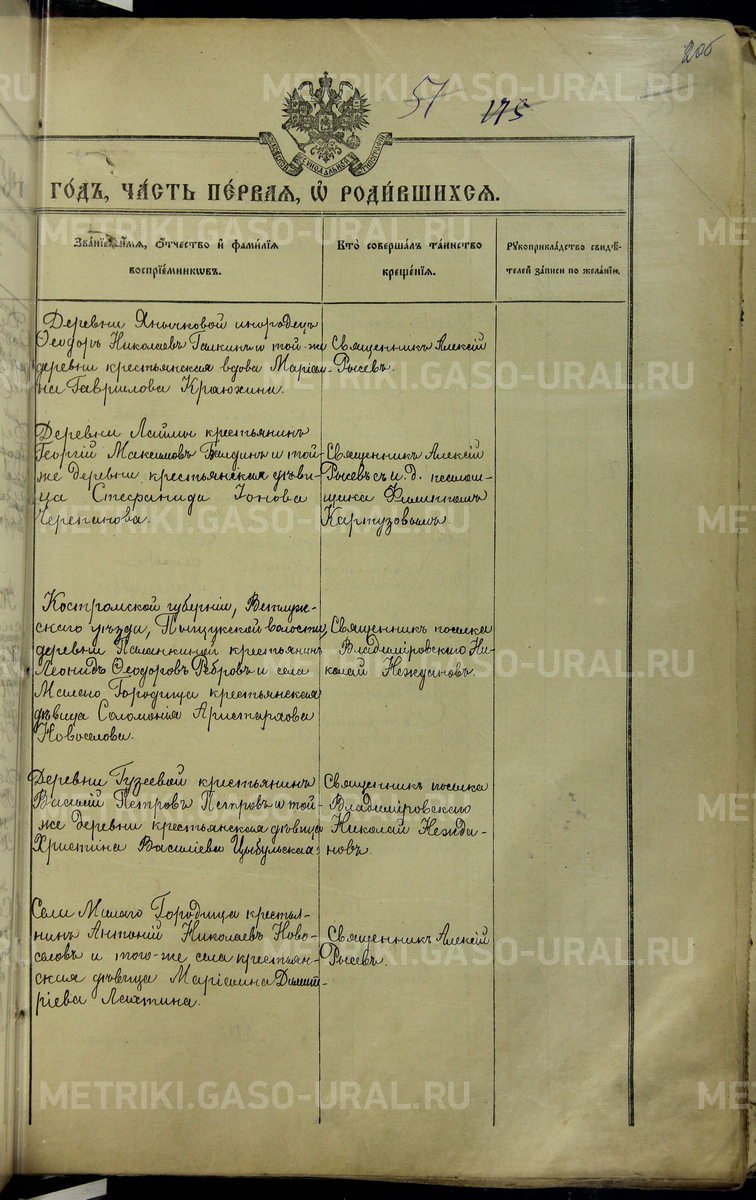 206
57 175
МОСКОВСКОЙ СѴНОДАЛЬНОЙ ТИПОГРАФІИ
ГО́ДЪ, ЧА́СТЬ ПЕ́РВАЯ, Ѡ РОДИ́ВШИХСЯ.
ЗВА́НІЕ, И́МЯ, О́ТЧЕСТВО И҆ ФАМИ́ЛІЯ
ВОСПРІЕ́МНИКѠВЪ.
КТО̀ СОВЕРША́ЛЪ ТА́ИНСТВО
КРЕЩЕ́НІЯ.
РУКОПРИКЛА́ДСТВО СВИДѢ́-
ТЕЛЕЙ ЗА́ПИСИ ПО ЖЕЛА́НІЮ.
Деревни Янычковой инородецъ
Ѳеодоръ Николаевъ Галкинъ и той-же
деревни крестьянская вдова Маріам-
на Гаврилова Краюхина.
Священникъ Алексій
Рысевъ.
Деревни Лаймы крестьянинъ
Георгій Максимовъ и той-
же деревни крестьянская дѣви-
ца Стефанида Іонова
Черепанова.
Священникъ Алексій
Рысевъ съ и. д. псаломщика
Филиппомъ
Картузовымъ.
Костромской губерніи, Ветлуж-
скаго уѣзда, Пыщугской волости,
деревни крестьянинъ
Леонидъ Ѳеодоровъ Ребровъ и села
Малаго Городища крестьянская
дѣвица Соломонія Аристархова
Новоселова.
Священникъ поселка
Владимірскаго Ни-
колай Неждановъ.
Деревни Гузеевой крестьянинъ
Василій Петровъ Петровъ и той-
же деревни крестьянская дѣвица
Христина Василіева Цыбульская.
Священникъ поселка
Владиміровскаго
Николай Нежда-
новъ.
Села Малаго Городища кресть-
янинъ Антоній Николаевъ Ново-
селовъ и того-же села крестьян-
ская дѣвица Маріамна Димит-
ріева Лаптина.
Священникъ Алексій
Рысевъ.
METRIKI.GASO-URAL.RU